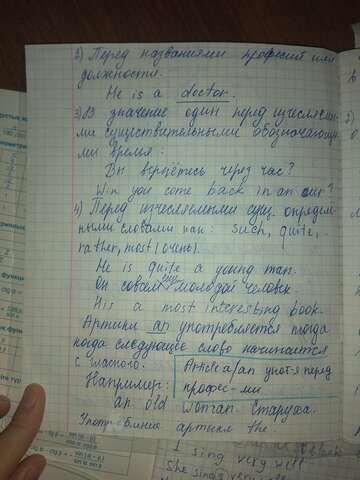 2) Перед названиями професий или
должности.
He is a doctor.
3) В значение один перед исчесляемы-
ми существительными обозначающи-
ми время:
Вы вернётесь через час?
Will you come back in an our?
4) Перед исчесляемыми сущ. определ-
ными словами как: such, quite,
rather, most (очень).
He is quite a young man.
Он совсем ещё молодой человек.
His a most interesting book.
Артикль an употребляется тогда
когда следующее слово начинается
с гласного.
Article a/an упот-я перед
профес-ми
Например:
an old woman. Старуха.
Употребление артикля the.
I
sing very well
She sings very well